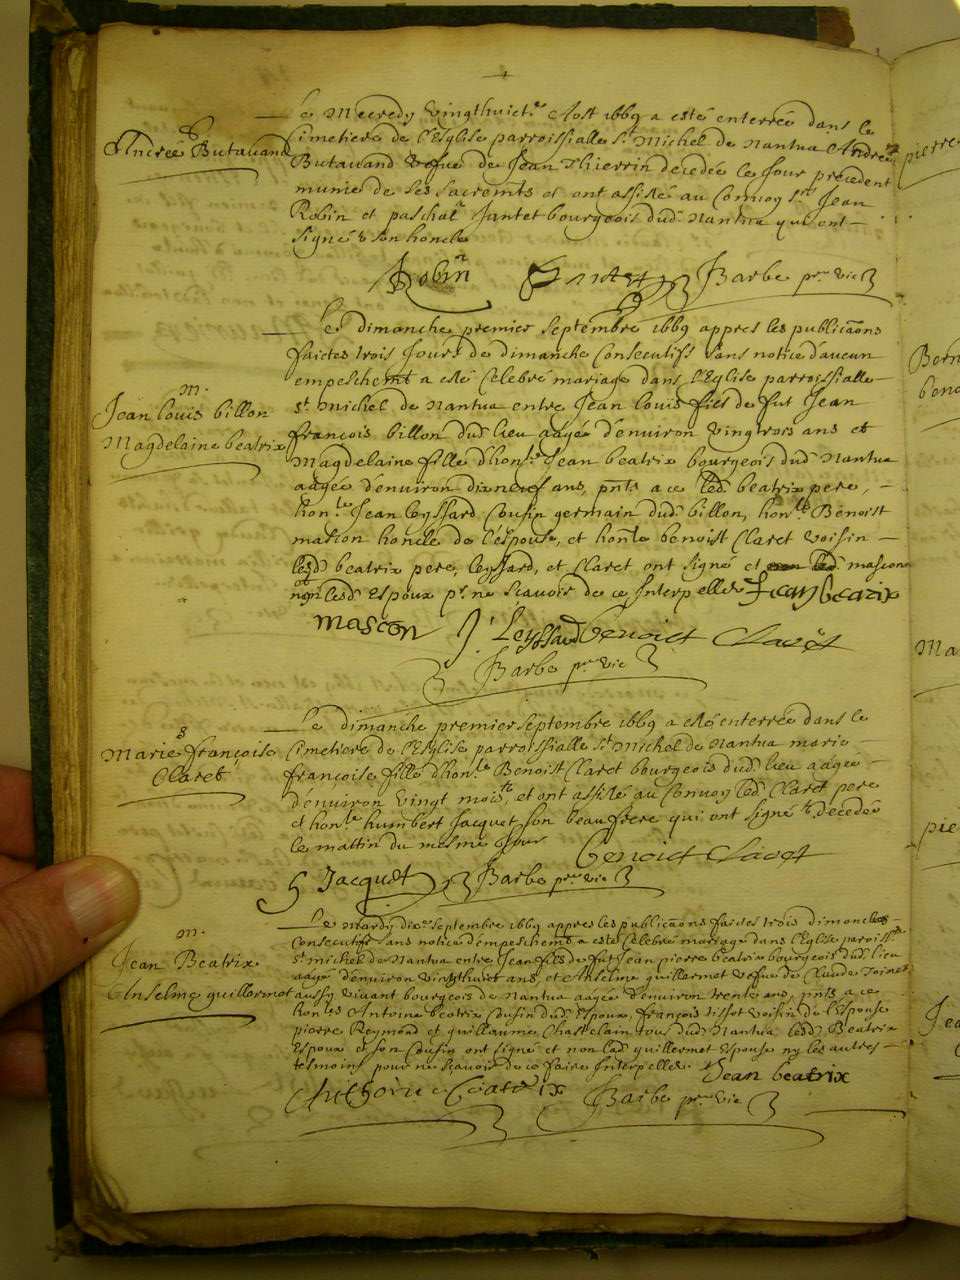 S
Andree Butavand
Le Mecredy vingthuict.e Aost 1669 a esté enterrée dans le
Cimetiere de l'Esglise parroissialle St Michel de Nantua Andree
Butavand vefue de Jean Thierrin decedée le Jour precedent
munie de ses sacremts et ont assisté au Convoy srs Jean
Robin et paschal Jantet bourgeois dud. Nantua qui ont
signé & son honcle
Robin Jantet Barbe pre. vic
m.
Jean Louis billon
Magdelaine beatrix
Le dimanche premier septembre 1669 appres les publicaons
faictes trois Jours de dimanche Consecutifs sans notice d'aucun
empeschemt a esté Celebré mariage dans l'Esglise parroissialle
St. Michel de Nantua entre Jean Louis fils de fut Jean
françois billon dud. lieu aagé d'environ vingtrois ans et
Magdelaine fille d'hon.le Jean beatrix bourgeois dud. Nantua
aagée d'environ dixneuf ans, pnts a ce led. beatrix pere,
hon.le Jean Leyssard Cousin germain dud. billon, hon.le Benoist
mascon honcle de l'espouse, et honle benoist Claret voisin
lesd. beatrix pere, leyssard, et Claret ont signé et led. mascon
non lesd. Espoux pr. ne sçavoir de ce Interpellés Jean beatrix
mascon J. Leyssard benoist Claret
Barbe pre. vic
S
Marie françoise
Claret
Le dimanche premier septembre 1669 a esté enterrée dans le
Cimetiere de l'Esglise parroissialle St Michel de Nantua marie
françoise fille d'hon.le Benoist Claret bourgeois dud. lieu aagée
d'environ vingt mois, et ont assisté au Convoy led. Claret pere
et hon.le humbert Jacquet son beaufrere qui ont signé decedée
le mattin du mesme Jour benoist Claret
Jacquet Barbe pre. vic
m.
Jean Beatrix
Anselme guillermot
Le Mardy dixe. septembre 1669 appres les publicaons faictes trois dimanches
Consecutifs sans notice d'empeschemt a esté Celebré mariage dans l'Esglise parroisslle
St michel de Nantua entre Jean fils de fut Jean pierre beatrix bourgeois dud. lieu
aagé d'environ vingthuict ans, et Anselme guillermet vefue de Claude
aussy vivant bourgeois de Nantua aagée d'environ trente ans, pnts a ce
honles Antoine beatrix Cousin dud. Espoux, françois tissot voisin de l'Espouse
pierre Reymond et guillaume Chastelain tous dud. Nantua lesd. Beatrix
Espoux et son Cousin ont signé et non lad. guillermet Espouse ny les autres
tesmoins pour ne sçavoir de ce faire Interpellés Jean beatrix
Anthoine beatrix Barbe pre. vic
pierre